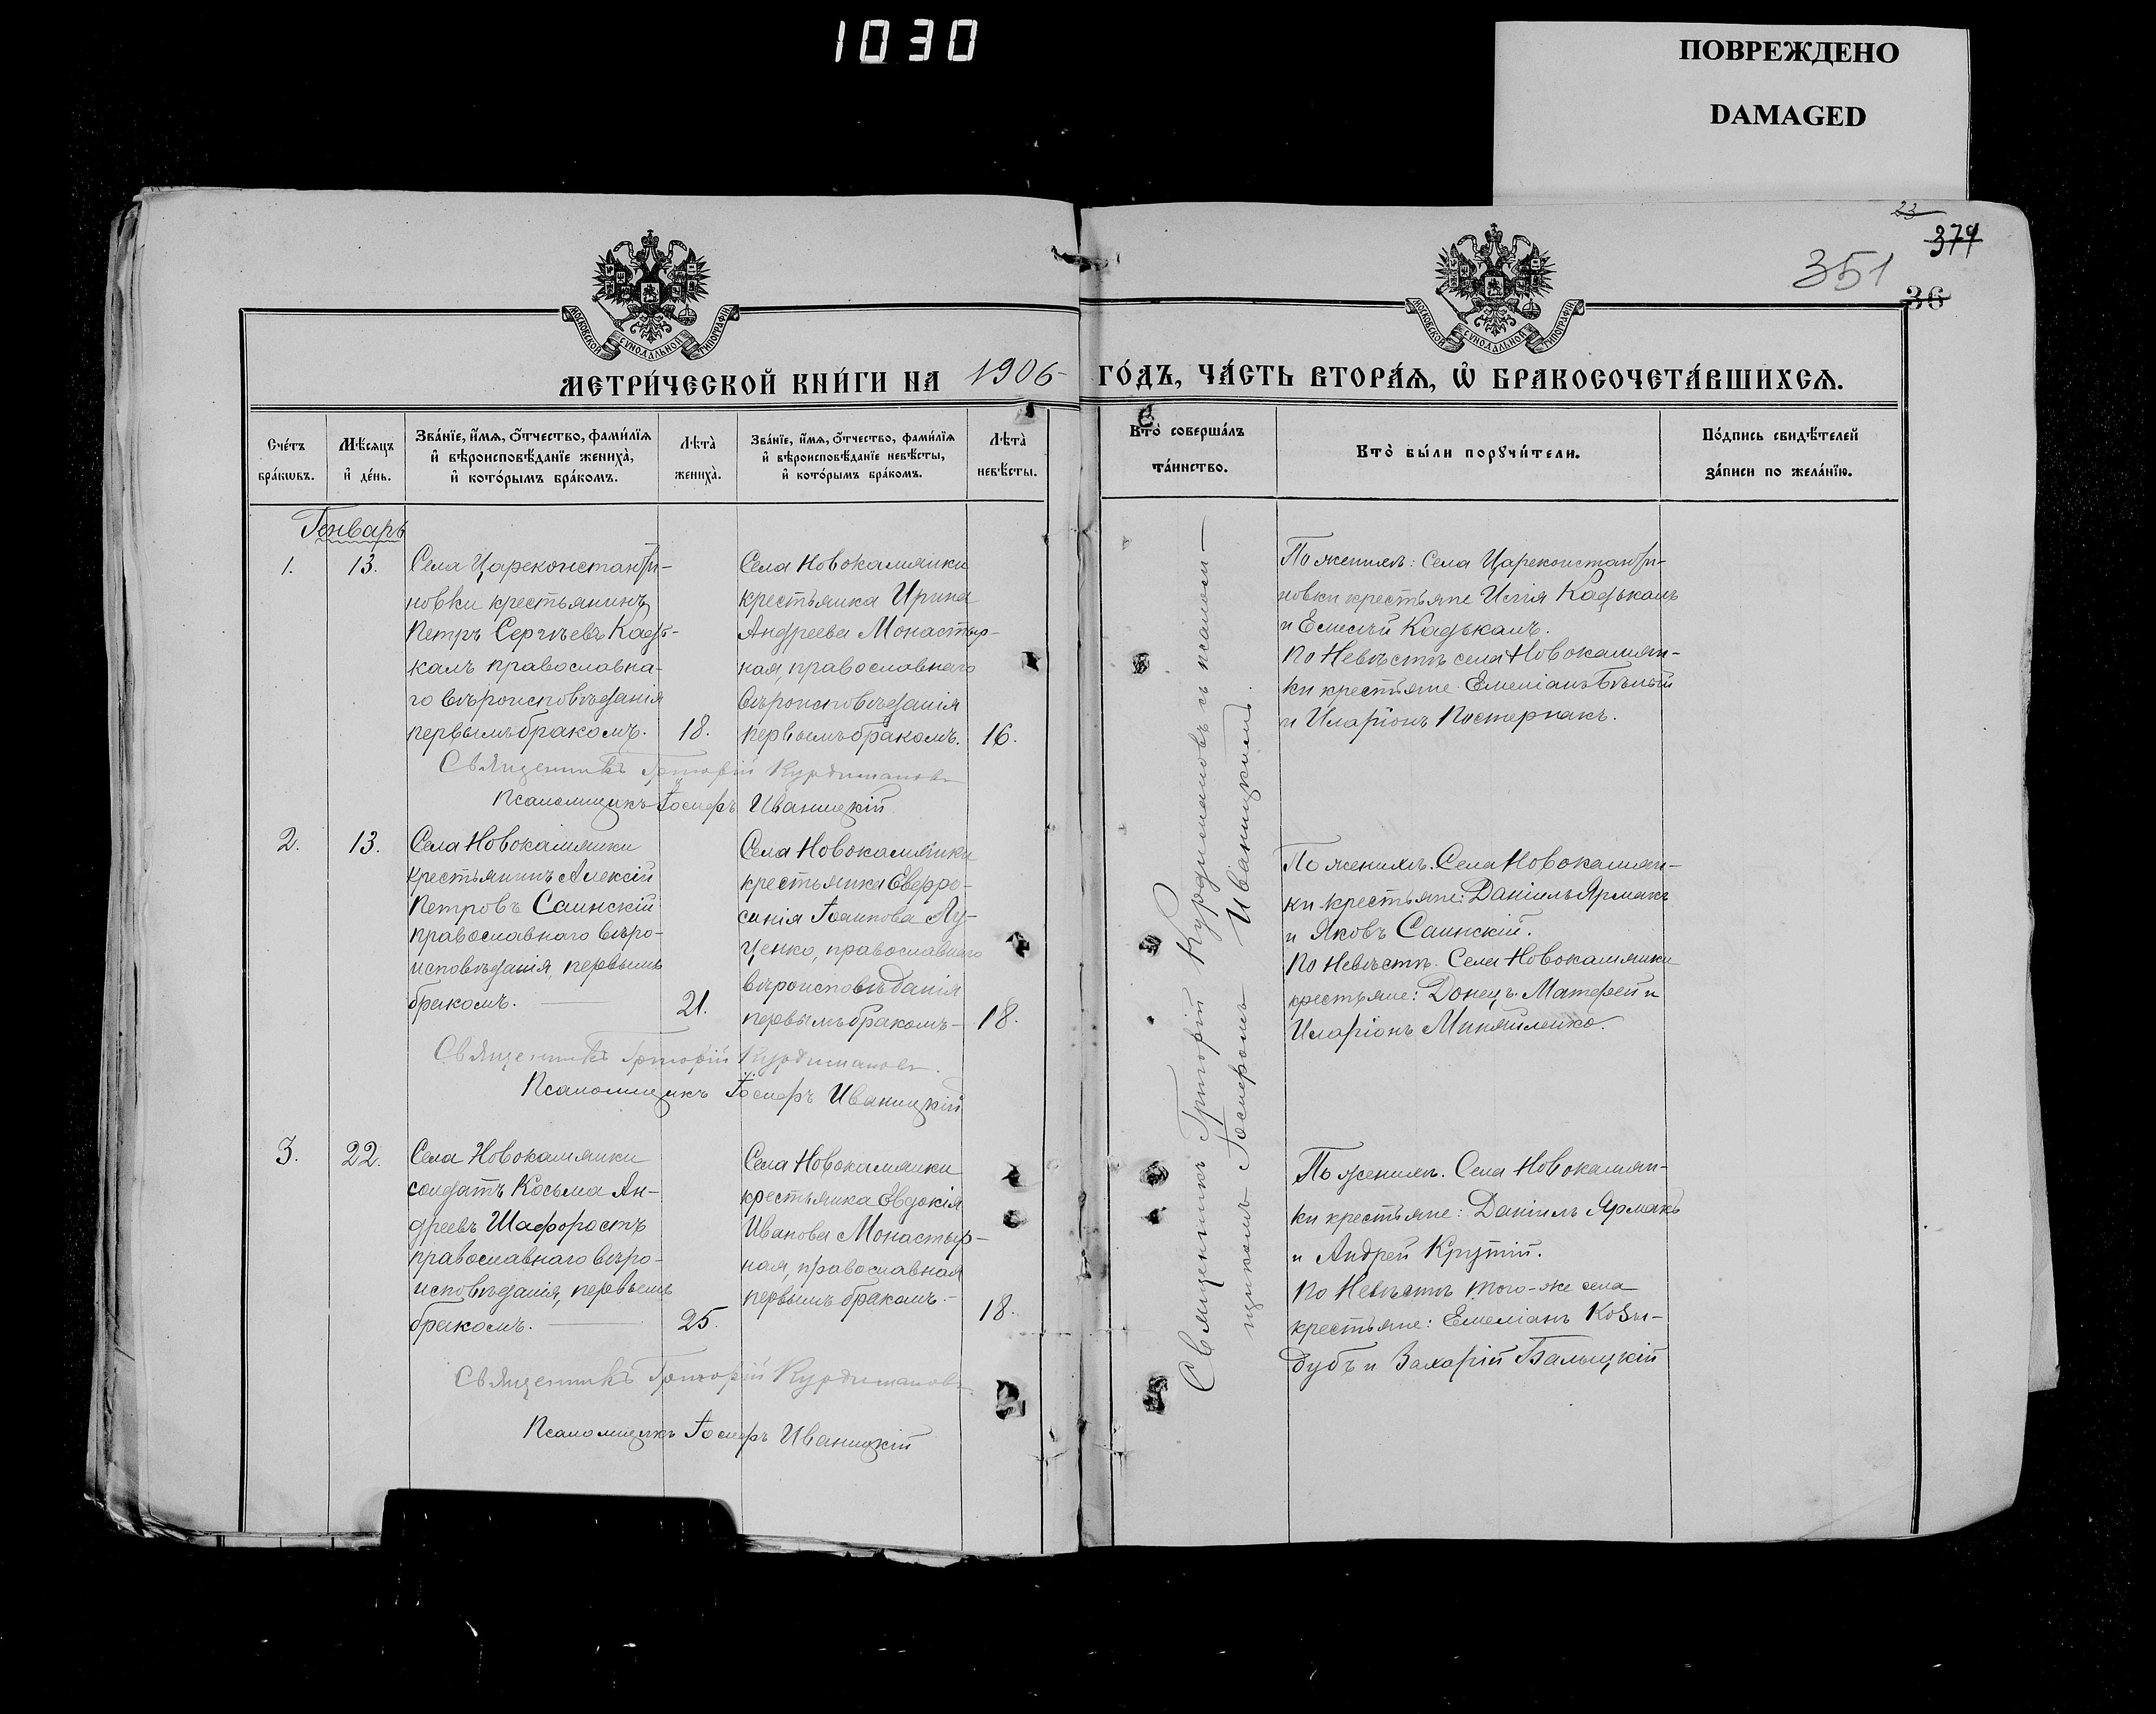 1030
ПОВРЕЖДЕНО
DAMAGED
23
379
351
36
МОСКОВСКОЙ СѴНОДАЛЬНОЙ ТИПОГРАФІИ
МОСКОВСКОЙ СѴНОДАЛЬНОЙ ТИПОГРАФІИ
МЕТРИ́ЧЕСКОЙ КНИ́ГИ НА 1906 ГО́ДЪ, ЧА́СТЬ ВТОРА́Ѧ, Ѽ БРАКОСОЧЕТА́ВШИХСѦ.
Сче́тъ бра́кѡвъ.
Мѣ́сяцъ и҆ де́нь.
Зва́нїе, и҆́мѧ, ѻ҆́тчество, фами́лїѧ и҆ вѣроисповѣ́данїе жениха̀, и҆ кото́рымъ бра́комъ.
Лѣ́та̀ жениха̀.
Зва́нїе, и҆́мѧ, ѻ҆́тчество, фами́лїѧ и҆ вѣроисповѣ́данїе невѣ́сты, и҆ кото́рымъ бра́комъ.
Лѣ́та̀ невѣ́сты.
Кто̀ соверша́лъ та́инство.
Кто̀ бы́ли порꙋчи́тели.
По́дпись свидѣ́телей за́писи по жела́нїю.
Генварь
1.
13.
Села Цареконстанти-
новки крестьянинъ
Петръ Сергѣевъ Кадь-
калъ православна-
го вѣроисповѣданія
первымъ бракомъ.
18.
Села Новокамянки
крестьянка Ирина
Андреева Монастыр-
ная, православнаго
вѣроисповѣданія
первымъ бракомъ.
16.
По женихѣ: Села Цареконстанти-
новки крестьяне Илія Кадькалъ
и Елисѣй Кадькалъ.
По Невѣстѣ села Новокамян-
ки крестьяне Емеліанъ Бѣлый
и Иларіонъ Пастернакъ.
Священникъ Григорій Курдимановъ
Псаломщикъ Іосифъ Иваницкій
2.
13.
Села Новокамянки
крестьянинъ Алексій
Петровъ Салнскій
православнаго вѣро-
исповѣданія, первымъ
бракомъ.
21.
Села Новокамянки
крестьянка Евфро-
синія Іоаннова Лу-
ценко, православнаго
вѣроисповѣданія
первымъ бракомъ
18.
По женихѣ. Села Новокамян-
ки крестьяне: Даніилъ Ярмакъ
и Яковъ Салнскій.
По Невѣстѣ. Села Новокамянки
крестьяне: Донецъ Матфей и
Иларіонъ Миняйленко.
Священникъ Григорій Курдимановъ.
Псаломщикъ Іосифъ Иваницкій
3.
22.
Села Новокамянки
солдатъ Косьма Ан-
дреевъ Шафоростъ
православнаго вѣро-
исповѣданія, первымъ
бракомъ.
25.
Села Новокамянки
крестьянка Евдокія
Иванова Монастыр-
ная, православная
первымъ бракомъ.
18.
По женихѣ. Села Новокамян-
ки крестьяне: Даніилъ Ярмакъ
и Андрей Крутій.
По Невѣстѣ того-же села
крестьяне: Емеліанъ Кози-
дубъ и Захарій Балыцкій
Священникъ Григорій Курдимановъ
Псаломщикъ Іосифъ Иваницкій
Священникъ Григорій Курдимановъ съ псалом-
щикомъ Іосифомъ Иваницкимъ.